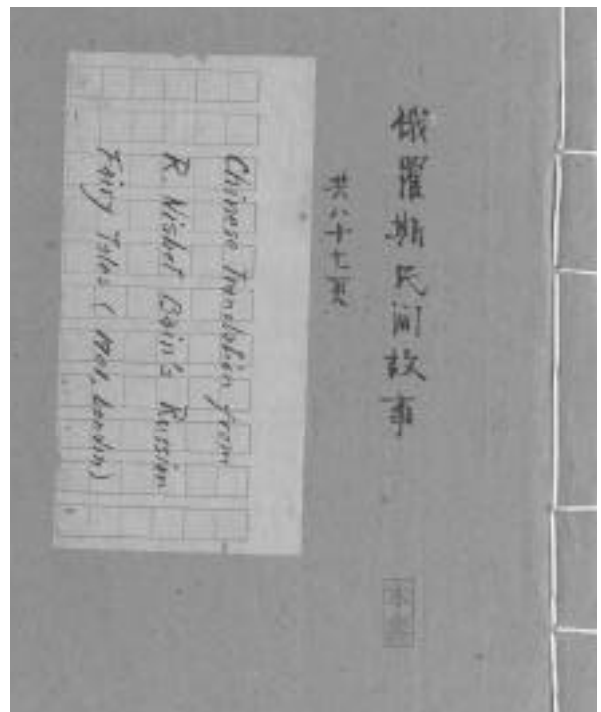 俄羅斯民间故事
共六十七頁
Chinese Translation from
R. Nisbet Bain's Russian
Fairy Tales ( London)